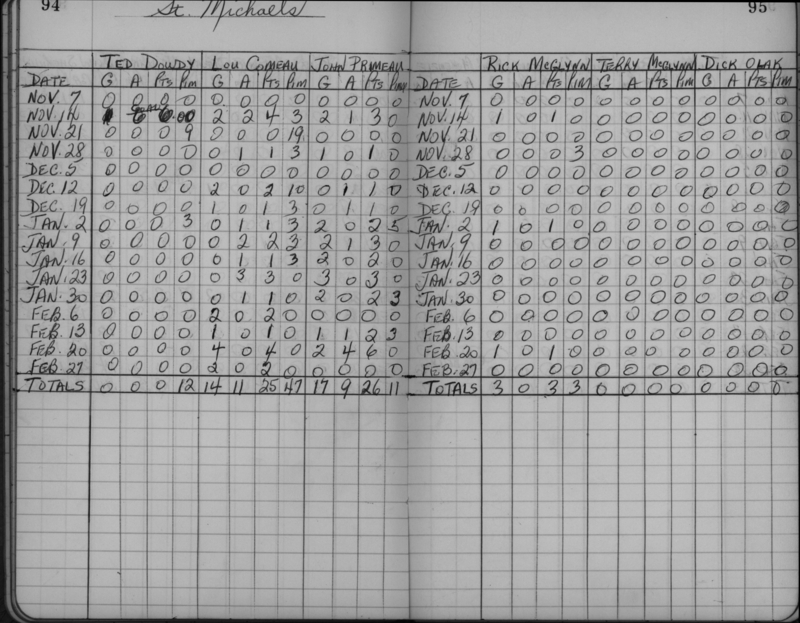 94
St. Michaels
TED DOWDY LOU COMEAU JOHN PRIMEAU
DATE G A Pts Pim G A Pts Pim G A Pts Pim
NOV. 7 0 0 0 0 0 0 0 0 0 0 0 0
NOV. 14 0 2 2 4 3 2 1 3 0
NOV. 21 0 0 0 9 0 0 0 19 0 0 0 0
NOV. 28 0 0 0 0 0 1 1 3 1 0 1 0
DEC. 5 0 0 0 0 0 0 0 0 0 0 0 0
DEC. 12 0 0 0 0 2 0 2 10 0 1 1 0
DEC. 19 0 0 0 0 1 0 1 3 0 1 1 0
JAN. 2 0 0 0 3 0 1 1 3 2 0 2 5
JAN. 9 0 0 0 0 0 2 2 3 2 1 3 0
JAN. 16 0 0 0 0 0 1 1 3 2 0 2 0
JAN. 23 0 0 0 0 0 3 3 0 3 0 3 0
JAN. 30 0 0 0 0 0 1 1 0 2 0 2 3
FEB. 6 0 0 0 0 2 0 2 0 0 0 0 0
FEB. 13 0 0 0 0 1 0 1 0 1 1 2 3
FEB. 20 0 0 0 0 4 0 4 0 2 4 6 0
FEB. 27 0 0 0 0 2 0 2 0 0 0 0 0
TOTALS 0 0 0 12 14 11 25 47 17 9 26 11
95
RICK MCGLYNN TERRY MCGLYNN DICK OLAK
DATE G A Pts Pim G A Pts Pim G A Pts Pim
NOV. 7 0 0 0 0 0 0 0 0 0 0 0 0
NOV. 14 1 0 1 0 0 0 0 0 0 0 0 0
NOV. 21 0 0 0 0 0 0 0 0 0 0 0 0
NOV. 28 0 0 0 3 0 0 0 0 0 0 0 0
DEC. 5 0 0 0 0 0 0 0 0 0 0 0 0
DEC. 12 0 0 0 0 0 0 0 0 0 0 0 0
DEC. 19 0 0 0 0 0 0 0 0 0 0 0 0
JAN. 2 1 0 1 0 0 0 0 0 0 0 0 0
JAN. 9 0 0 0 0 0 0 0 0 0 0 0 0
JAN. 16 0 0 0 0 0 0 0 0 0 0 0 0
JAN. 23 0 0 0 0 0 0 0 0 0 0 0 0
JAN. 30 0 0 0 0 0 0 0 0 0 0 0 0
FEB. 6 0 0 0 0 0 0 0 0 0 0 0 0
FEB. 13 0 0 0 0 0 0 0 0 0 0 0 0
FEB. 20 1 0 1 0 0 0 0 0 0 0 0 0
FEB. 27 0 0 0 0 0 0 0 0 0 0 0 0
TOTALS 3 0 3 3 0 0 0 0 0 0 0 0